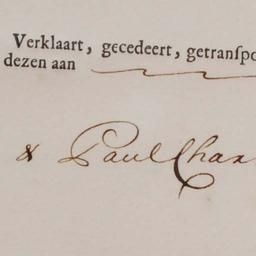 Verklaart, gecedeert, getranſpo
dezen aan
& Paul Char